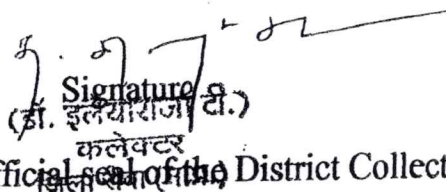 Signature
(डॉ. इलैयाराजा टी.)
कलेक्टर
fficial seal of the District Collect